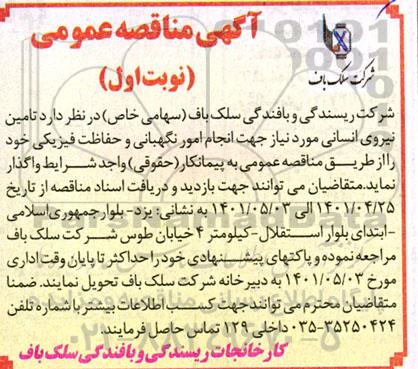 آگهی مناقصه عمومی
(نوبت اول)
شرکت سلک باف
شرکت ریسندگی و بافندگی سلک باف (سهامی خاص) در نظر دارد تامین
نیروی انسانی مورد نیاز جهت انجام امور نگهبانی و حفاظت فیزیکی خود
را از طریق مناقصه عمومی به پیمانکار (حقوقی) واجد شرایط واگذار
نماید. متقاضیان می توانند جهت بازدید و دریافت اسناد مناقصه از تاریخ
۱۴۰۱/۰۴/۲۵ الی ۱۴۰۱/۰۵/۰۳ به نشانی: یزد- بلوار جمهوری اسلامی
-ابتدای بلوار استقلال- کیلومتر ۴ خیابان طوس شرکت سلک باف
مراجعه نموده و پاکتهای پیشنهادی خود را حداکثر تا پایان وقت اداری
مورخ ۱۴۰۱/۰۵/۰۳ به دبیرخانه شرکت سلک باف تحویل نمایند. ضمنا
متقاضیان محترم می توانند جهت کسب اطلاعات بیشتر با شماره تلفن
۰۳۵-۳۵۲۵۰۴۲۴ داخلی ۱۲۹ تماس حاصل فرمایند.
کارخانجات ریسندگی و بافندگی سلک باف